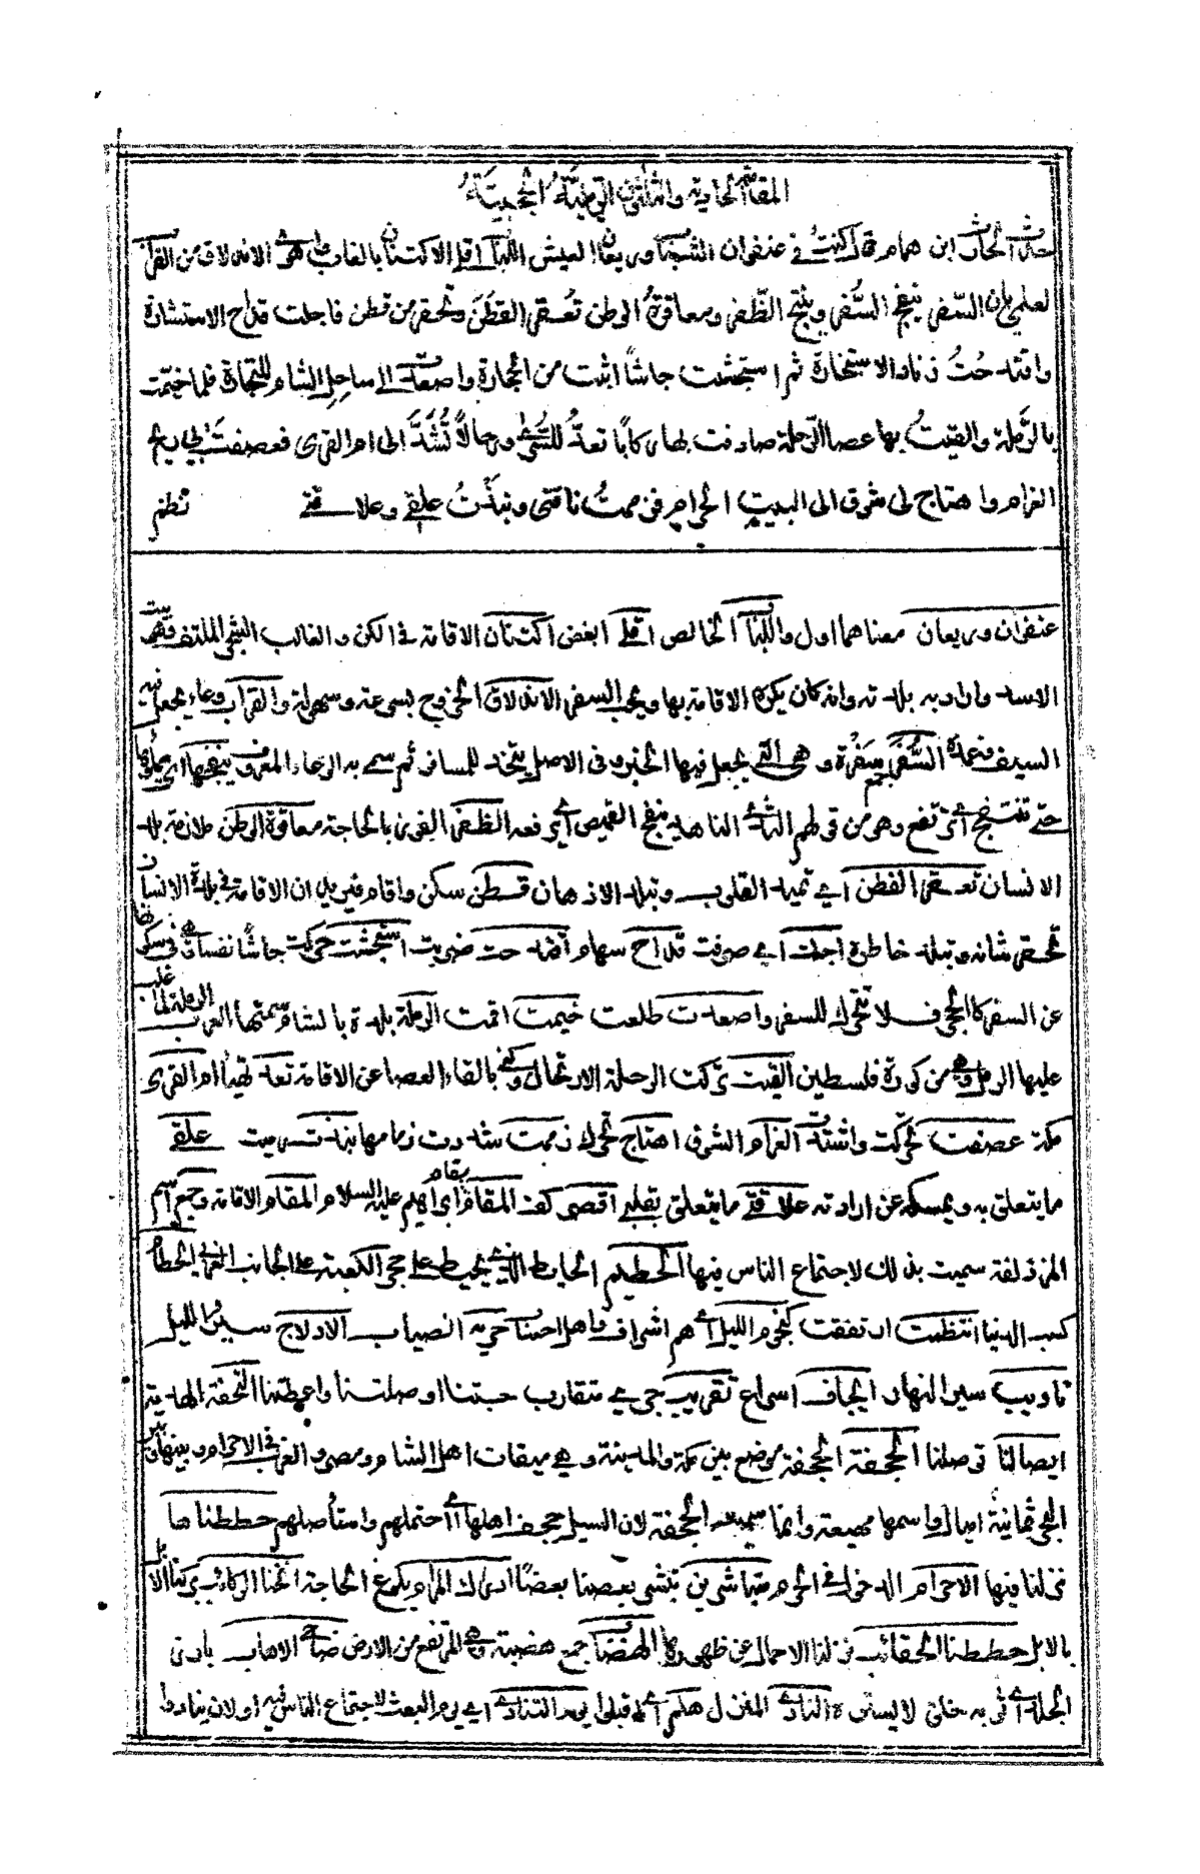 المقامة الحادية والثلثون الرملية الحجية
حدث الحارث ابن همام قال كنت في عنفوان الشباب وريعان العيش اللباب اقلى الاكتنان بالغاب واهوى الاندلاق من القراب
لعلمي بان السفر ينفج السفر وينتج الظفر ومعاقرة الوطن تعقر الفطن وتحقر من قطن فاجلت قداح الاستشارة
واقتدحت زناد الاستخارة ثم استجشت جاشا اثبت من الحجارة واصعدت الى ساحل الشام للتجارة فلما خيمت
بالرملة والقيت بها عصا الرحلة صادفت بها ركابا تعد للسرى ورحالا تشد الى ام القرى فعصفت بي ريح
الغرام واهتاج لي شوق الى البيت الحرام فزممت ناقتي ونبذت علقي وعلاقتي نظم
عنفوان وريعان معناهما اول واللباب الخالص اقلى ابغض اكتنان الاقامة في الكن والغالب الشجر الملتف فيه بيت
الاسد واراد به بلدته وانه كان يكره الاقامة بها ويحب السفر الاندلاق الخروج بسرعة وسهولة والقراب وعاء يجعل فيه
السيف وغمده السفر سفرة وهي التي يجعل فيها الخبز وفي الاصل يتخذ للمسافر ثم سمي به الوعاء المعروف ينفجها اي يملؤها
حتى تنتفج اي ترتفع وهو من قولهم الثدي الناهد ينفج القميص اي يرفعه الظفر الفوز بالحاجة معاقرة الوطن ملازمة بلد
الانسان تعقر الفطن اي تميد القلوب وتبلد الاذهان قطن سكن واقام فيريد ان الاقامة في بلدة الانسان
تحقر شانه وتبلد خاطره اجلت اي صرفت قداح سهام اقتدحت ضربت استجشت حركت جاشا نفسا هي في سكونها
عن السفر كالحجر فلا تتحرك للسفر واصعدت طلعت خيمت اقمت الرملة بلدة بالشام سمتها العرب الرملة لما غلب
عليها الرمل وهي من كورة فلسطين القيت تركت الرحلة الارتحال وكنى بالقاء العصا عن الاقامة تعد تهيأ ام القرى
مكة عصفت تحركت واشتدت الغرام الشوق اهتاج تحرك زممت شددت زمامها نبذت رميت علقي
ما يتعلق به ويمسكه عن ارادته علاقتي ما يتعلق بقلبي اقصر كف المقام مقام ابراهيم عليه السلام المقام الاقامة وجمع اسم
المزدلفة سميت بذلك لاجتماع الناس فيها الحطيم الحايط الذي يحيط على حجر الكعبة على الجانب الغربي الحطام
كسب الدنيا انتظمت ارتفقت كنجوم الليل اي هم اشراف واهل احساب جرية انصباب الادلاج سير الليل
تاويب سير النهار ايجاف اسراع تقريب جري متقارب حبتنا اوصلتنا واعطتنا التحفة الهدية
ايصالنا توصلنا الجحفة الجحفة موضع بين مكة والمدينة وهي ميقات اهل الشام ومصر والغرب في الاحرام وبينها وبين
البحر ثمانية اميال واسمها مهيعة وانما سميت الجحفة لان السيل جحف اهلها اي احتملهم واستأصلهم حططناها
نزلنا فيها الاحرام الدخول في الحرم متباشرين يبشر بعضنا بعضا ادراك المرام بلوغ الحاجة انخنا الركائب بركنا الابل
بالابل حططنا الحقائب نزلنا الاحمال عن ظهورها الهضاب جمع هضبة وهي المرتفع من الارض ضاحي الاهاب بادي
الجلد اي ثوبه خلق لا يستره النادي المنزل هلم اي اقبلوا يوم التنادي اي يوم البعث لاجتماع الناس فيه او لان ينادوا